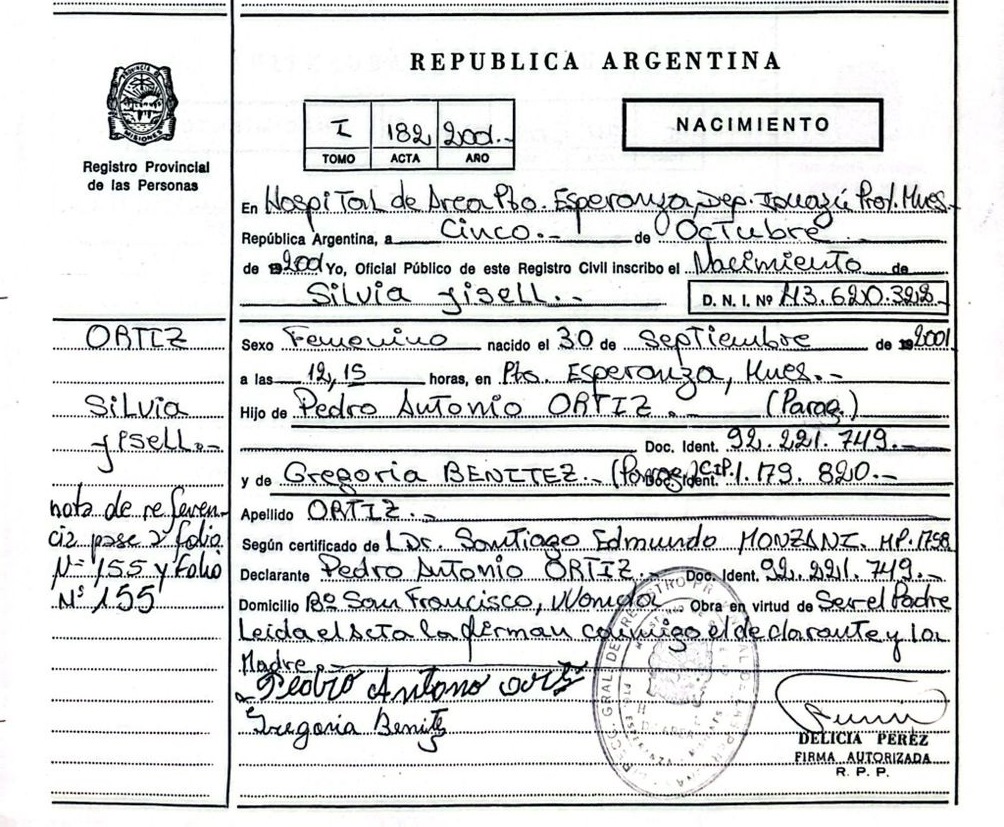 REPUBLICA ARGENTINA
PROVINCIA MISIONES
Registro Provincial
de las Personas
I 182 2001.-
TOMO ACTA AÑO
NACIMIENTO
En Hospital de Area Pto. Esperanza, Dep. Iguazú Prov. Mnes.-
República Argentina, a Cinco.- de Octubre
de 2001 Yo, Oficial Público de este Registro Civil inscribo el Nacimiento de
Silvia Jisell.- D. N. I. Nº 43.620.322-
ORTIZ
Silvia
Jisell.-
nota de referen-
cia pase a folio
Nº 155 y Folio
Nº 155
Sexo Femenino nacido el 30 de Septiembre de 2001
a las 12,15 horas, en Pto. Esperanza, Mnes.-
Hijo de Pedro Antonio ORTIZ.- (Parag.)
Doc. Ident. 92.221.749.-
y de Gregoria BENITEZ.- (Parag.) C.I.P. 1.179.820.-
Apellido ORTIZ.-
Según certificado de L Dr. Santiago Edmundo MONZANI. MP. 1758
Declarante Pedro Antonio ORTIZ.- Doc. Ident. 92.221.749.-
Domicilio Bº San Francisco, Wanda Obra en virtud de Ser el Padre
Leída el Acta la firman conmigo el declarante y la
Madre.-
Pedro Antono ortiz
Gregoria Benitez
DELICIA PEREZ
FIRMA AUTORIZADA
R. P. P.